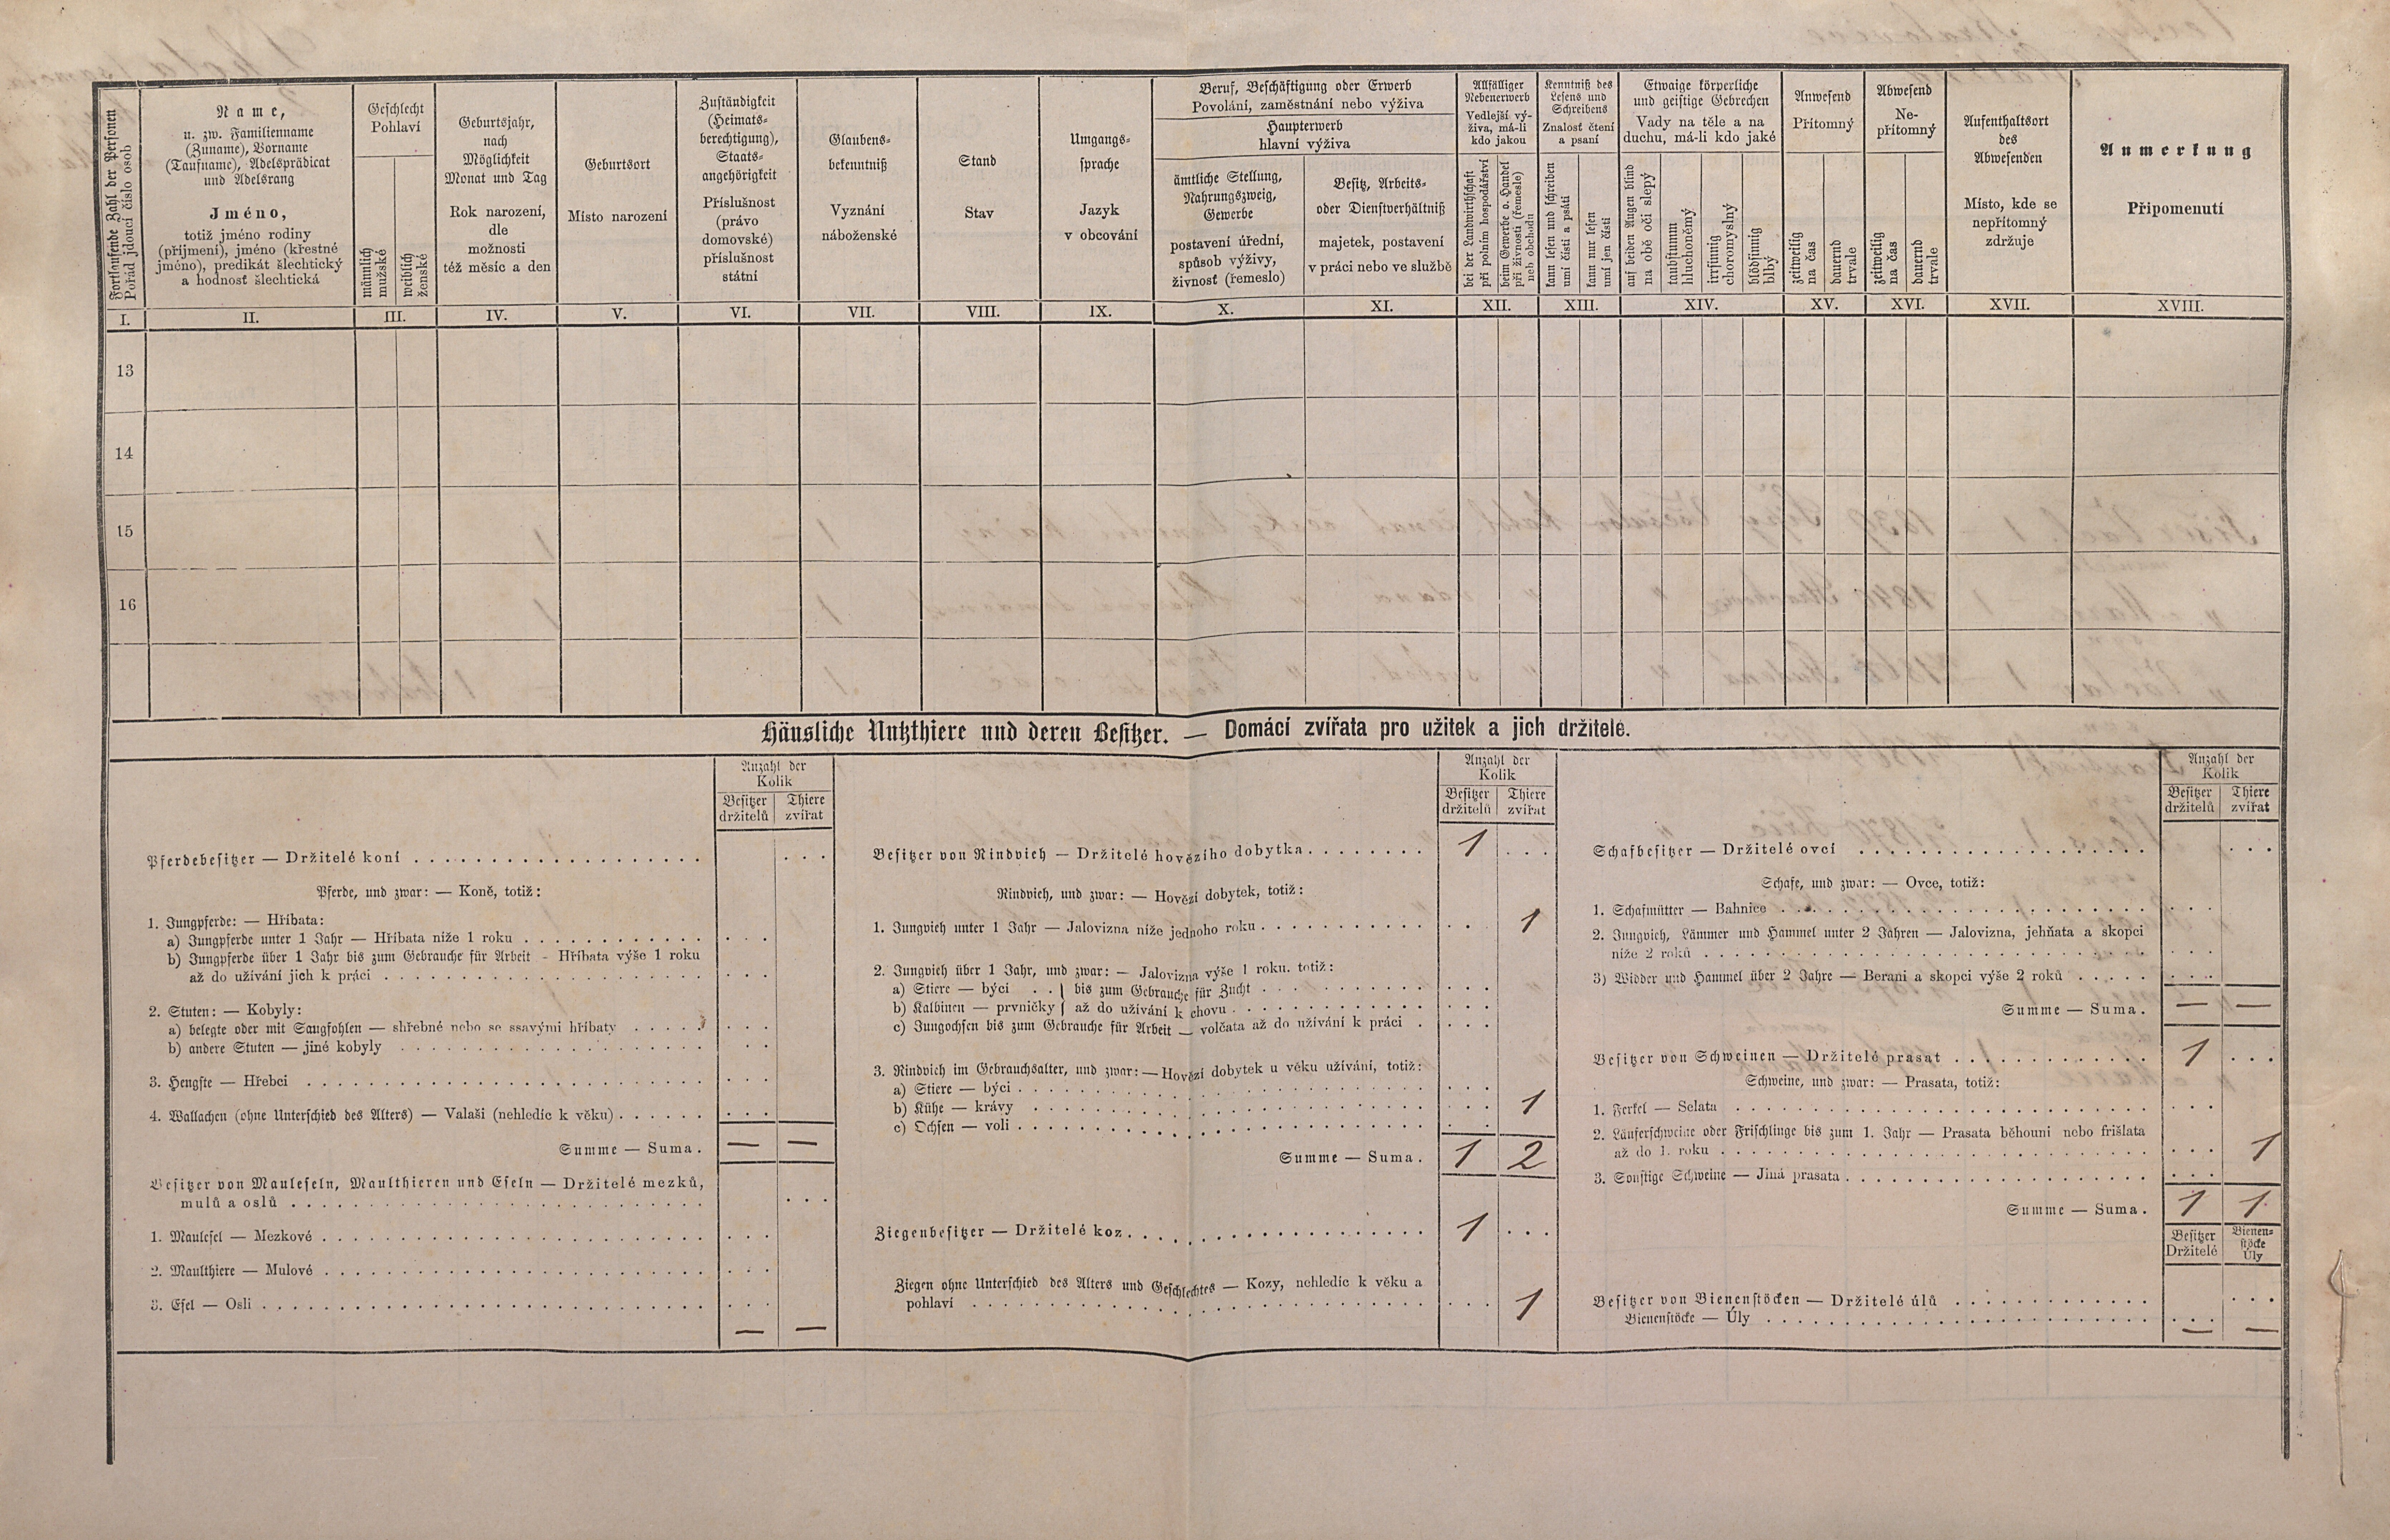 Fortlaufende Zahl der Personen
Pořád jdoucí číslo osob
Name,
u. zw. Familienname
(Zuname), Vorname
(Taufname), Adelsprädicat
und Adelsrang
Jméno,
totiž jméno rodiny
(příjmení), jméno (křestné
jméno), predikát šlechtický
a hodnosť šlechtická
Geschlecht
Pohlaví
männlich
mužské
weiblich
ženské
Geburtsjahr,
nach
Möglichkeit
Monat und Tag
Rok narození,
dle
možnosti
též měsíc a den
Geburtsort
Místo narození
Zuständigkeit
(Heimats-
berechtigung),
Staats-
angehörigkeit
Příslušnost
(právo
domovské)
příslušnost
státní
Glaubens-
bekenntniß
Vyznání
náboženské
Stand
Stav
Umgangs-
sprache
Jazyk
v obcování
Beruf, Beschäftigung oder Erwerb
Povolání, zaměstnání nebo výživa
Haupterwerb
hlavní výživa
ämtliche Stellung,
Nahrungszweig,
Gewerbe
postavení úřední,
spůsob výživy,
živnosť (řemeslo)
Besitz, Arbeits-
oder Dienstverhältniß
majetek, postavení
v práci nebo ve službě
Allfälliger
Nebenerwerb
Vedlejší vý-
živa, má-li
kdo jakou
bei der Landwirthschaft
při polním hospodářství
beim Gewerbe o. Handel
při živnosti (řemesle)
neb obchodu
Kenntniß des
Lesens und
Schreibens
Znalosť čtení
a psaní
kann lesen und schreiben
umí čísti a psáti
kann nur lesen
umí jen čísti
Etwaige körperliche
und geistige Gebrechen
Vady na těle a na
duchu, má-li kdo jaké
auf beiden Augen blind
na obě oči slepý
taubstumm
hluchoněmý
irrsinnig
choromyslný
blödsinnig
blbý
Anwesend
Přítomný
zeitweilig
na čas
dauernd
trvale
Abwesend
Ne-
přítomný
zeitweilig
na čas
dauernd
trvale
Aufenthaltsort
des
Abwesenden
Místo, kde se
nepřítomný
zdržuje
Anmerkung
Připomenutí
I. II. III. IV. V. VI. VII. VIII. IX. X. XI. XII. XIII. XIV. XV. XVI. XVII. XVIII.
13
14
15
16
Häusliche Nutzthiere und deren Besitzer. — Domácí zvířata pro užitek a jich držitelé.
Anzahl der
Kolik
Besitzer Thiere
držitelů zvířat
Pferdebesitzer — Držitelé koní . . .
Pferde, und zwar: — Koně, totiž:
1. Jungpferde: — Hříbata:
a) Jungpferde unter 1 Jahr — Hříbata níže 1 roku . . .
b) Jungpferde über 1 Jahr bis zum Gebrauche für Arbeit - Hříbata výše 1 roku
až do užívání jich k práci . . .
2. Stuten: — Kobyly:
a) belegte oder mit Saugfohlen — shřebné nebo se ssavými hříbaty . . .
b) andere Stuten — jiné kobyly . . .
3. Hengste — Hřebci . . .
4. Wallachen (ohne Unterschied des Alters) — Valaši (nehledíc k věku) . . .
Summe — Suma. — —
Besitzer von Mauleseln, Maulthieren und Eseln — Držitelé mezků,
mulů a oslů . . .
1. Maulesel — Mezkové . . .
2. Maulthiere — Mulové . . .
3. Esel — Osli . . .
— —
Anzahl der
Kolik
Besitzer Thiere
držitelů zvířat
Besitzer von Rindvieh — Držitelé hovězího dobytka . . . 1
Rindvieh, und zwar: — Hovězí dobytek, totiž:
1. Jungvieh unter 1 Jahr — Jalovizna níže jednoho roku . . . 1
2. Jungvieh über 1 Jahr, und zwar: — Jalovizna výše 1 roku. totiž:
a) Stiere — býci . . } bis zum Gebrauche für Zucht . . .
b) Kalbinen — prvničky } až do užívání k chovu . . .
c) Jungochsen bis zum Gebrauche für Arbeit — volčata až do užívání k práci . . .
3. Rindvieh im Gebrauchsalter, und zwar: — Hovězí dobytek u věku užívání, totiž:
a) Stiere — býci . . .
b) Kühe — krávy . . . 1
c) Ochsen — voli . . .
Summe — Suma. 1 2
Ziegenbesitzer — Držitelé koz . . . 1
Ziegen ohne Unterschied des Alters und Geschlechtes — Kozy, nehledíc k věku a
pohlaví . . . 1
Anzahl der
Kolik
Besitzer Thiere
držitelů zvířat
Schafbesitzer — Držitelé ovcí . . .
Schafe, und zwar: — Ovce, totiž:
1. Schafmütter — Bahnice . . .
2. Jungvieh, Lämmer und Hammel unter 2 Jahren — Jalovizna, jehňata a skopci
níže 2 roků . . .
3) Widder und Hammel über 2 Jahre — Berani a skopci výše 2 roků . . .
Summe — Suma. — —
Besitzer von Schweinen — Držitelé prasat . . . 1
Schweine, und zwar: — Prasata, totiž:
1. Ferkel — Selata . . .
2. Läuferschweine oder Frischlinge bis zum 1. Jahr — Prasata běhouni nebo frišlata
až do 1. roku . . . 1
3. Sonstige Schweine — Jiná prasata . . .
Summe — Suma. 1 1
Besitzer Bienen-
stöcke
Držitelé Úly
Besitzer von Bienenstöcken — Držitelé úlů . . .
Bienenstöcke — Úly . . .
— —